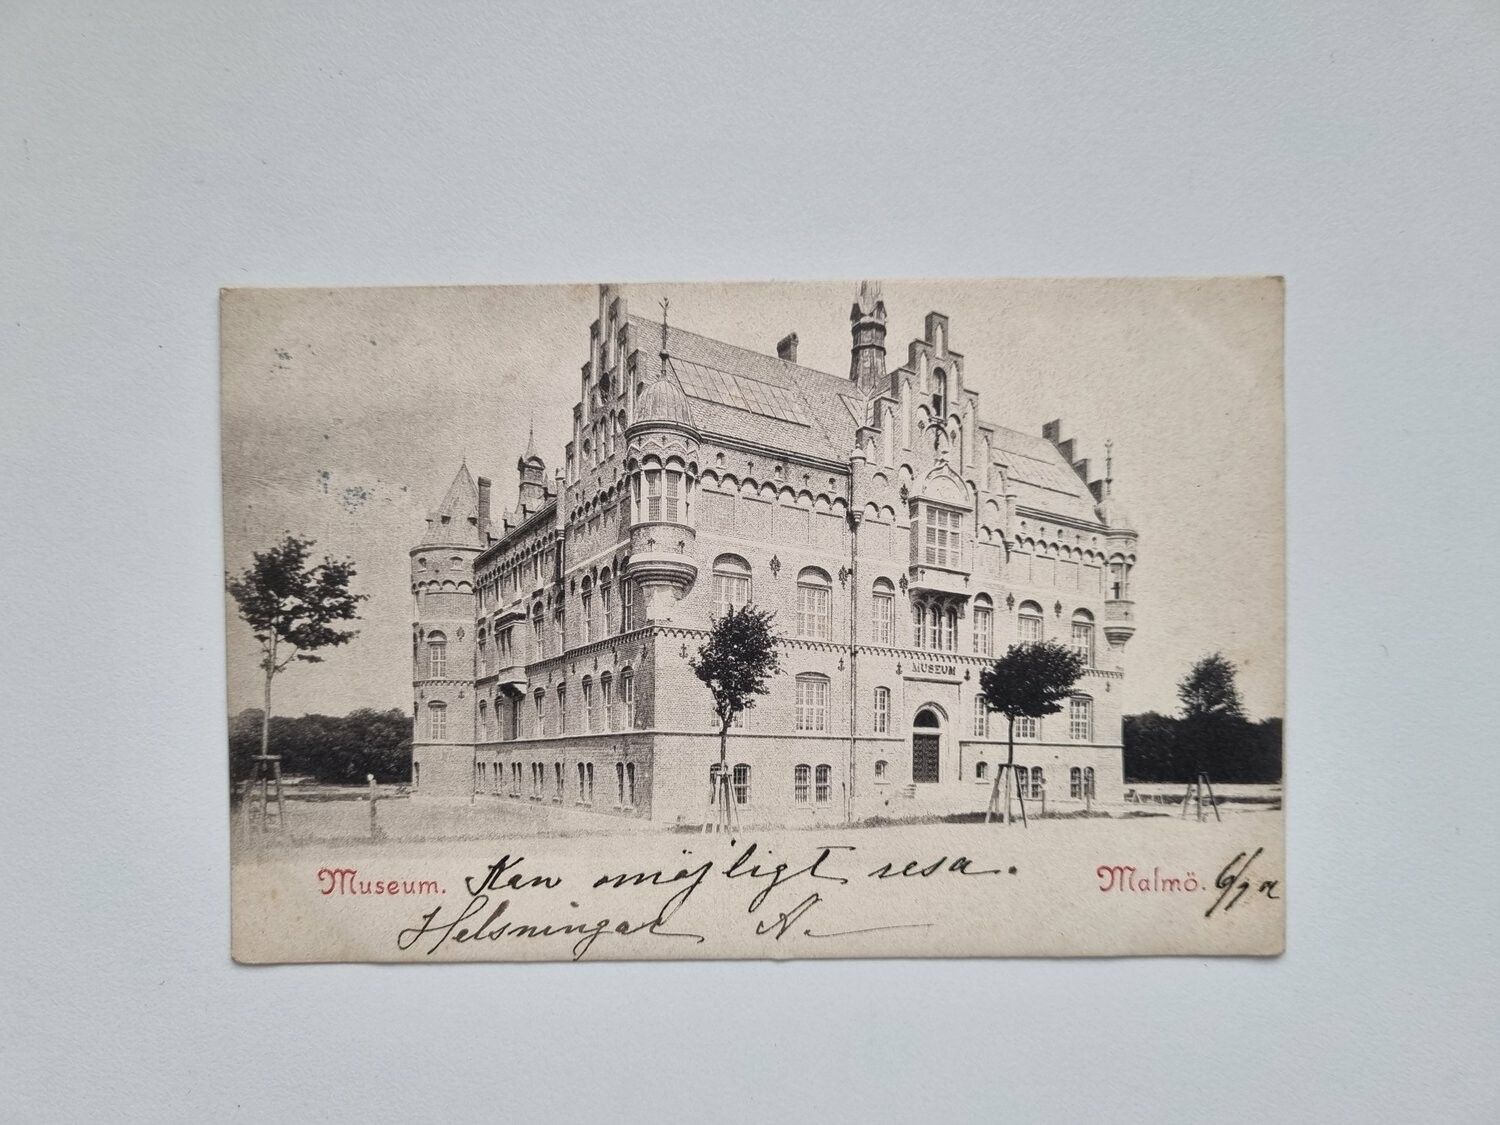 MUSEUM
Museum. Kan omöjligt resa. Malmö. 6/7
Helsningar A.